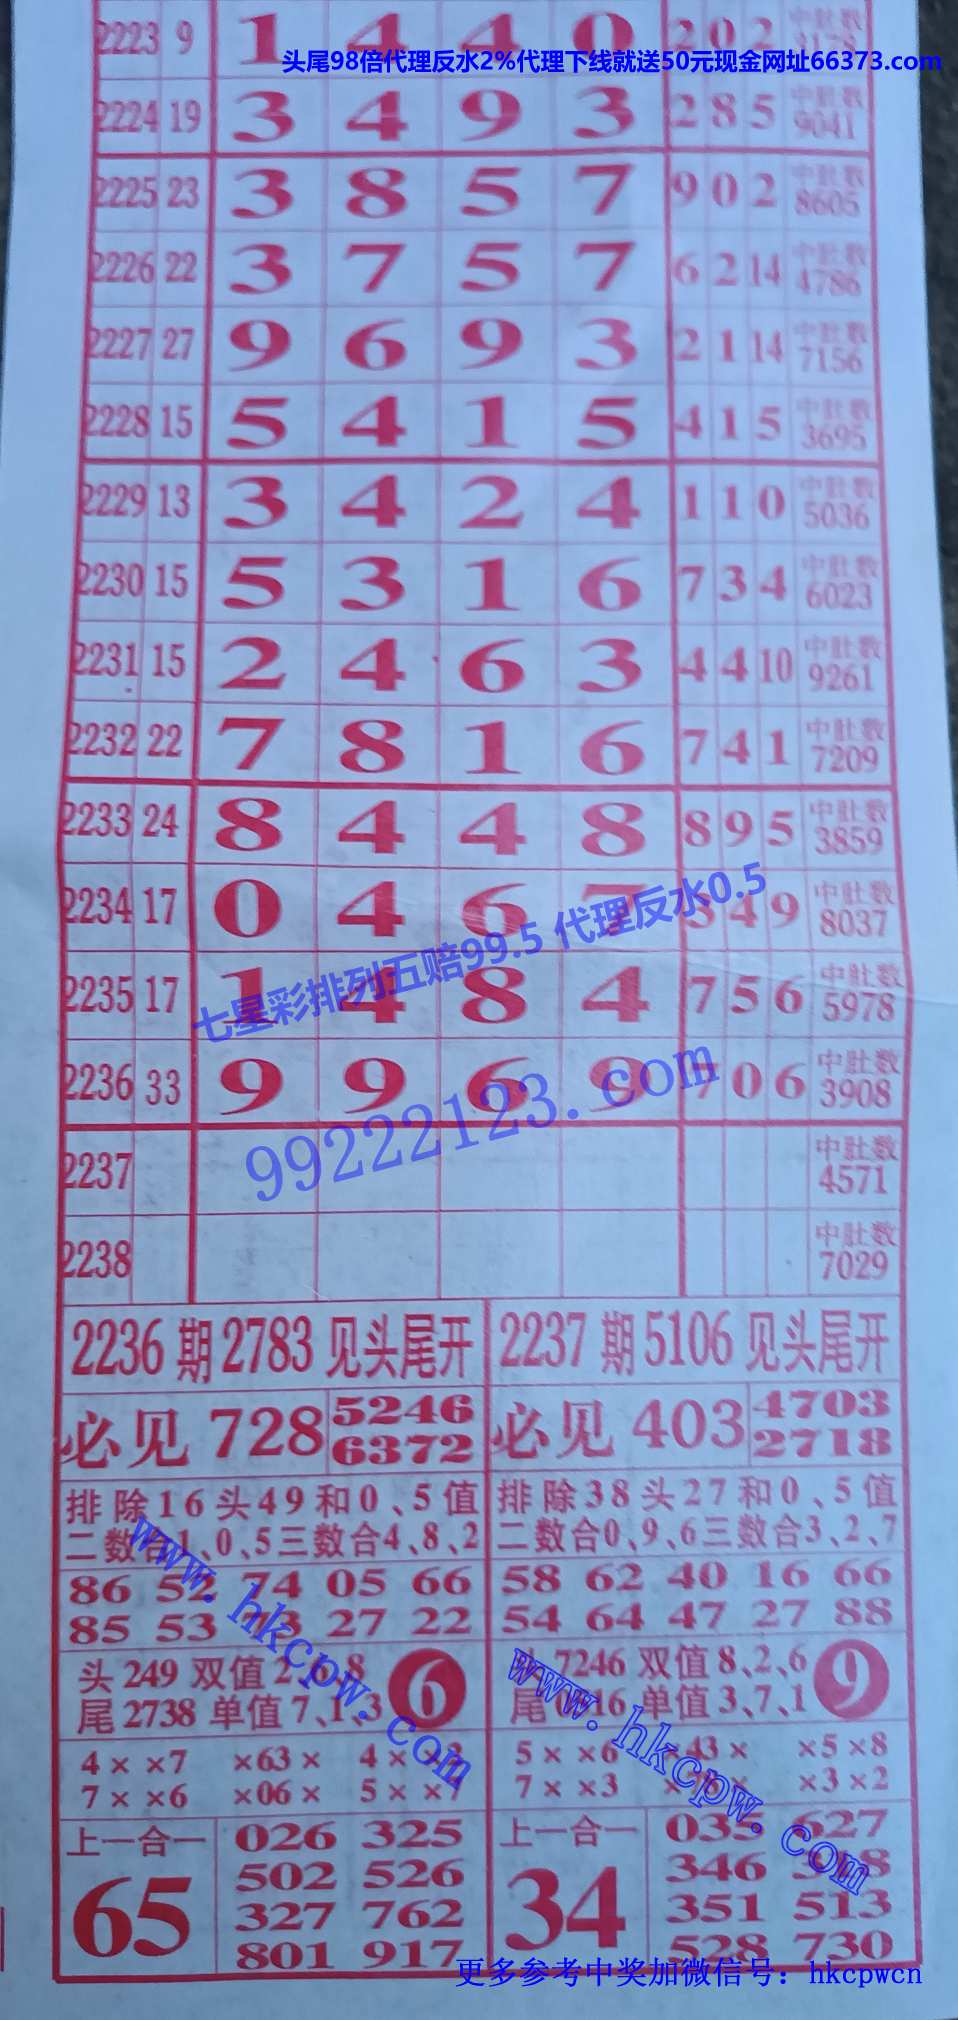 2223 9 1 4 4 0 2 0 2 中肚数
头尾98倍代理反水2%代理下线就送50元现金网址66373.com
2224 19 3 4 9 3 2 8 5 中肚数 9041
2225 23 3 8 5 7 9 0 2 中肚数 8605
2226 22 3 7 5 7 6 2 14 中肚数 4786
2227 27 9 6 9 3 2 1 14 中肚数 7156
2228 15 5 4 1 5 4 1 5 中肚数 3695
2229 13 3 4 2 4 1 1 0 中肚数 5036
2230 15 5 3 1 6 7 3 4 中肚数 6023
2231 15 2 4 6 3 4 4 10 中肚数 9261
2232 22 7 8 1 6 7 4 1 中肚数 7209
2233 24 8 4 4 8 8 9 5 中肚数 3859
2234 17 0 4 6 7 4 9 中肚数 8037
七星彩排列五赔99.5 代理反水0.5
2235 17 1 4 8 4 7 5 6 中肚数 5978
2236 33 9 9 6 9 7 0 6 中肚数 3908
99222123.com
2237 中肚数 4571
2238 中肚数 7029
2236期2783见头尾开
必见728 5246
6372
排除16头49和0、5值
二数合1、0、5三数合4、8、2
86 52 74 05 66
85 53 73 27 22
头249双值2、6、8
尾2738单值7、1、3
6
4××7 ×63× 4××2
7××6 ×06× 5××7
上一合一
65
026 325
502 526
327 762
801 917
www.hkcpw.com
2237期5106见头尾开
必见403 4703
2718
排除38头27和0、5值
二数合0、9、6三数合3、2、7
58 62 40 16 66
54 64 47 27 88
7246双值8、2、6
尾 16单值3、7、1
9
5××6 ×43× ×5×8
7××3 ×3×2
上一合一
34
035 627
346
351 513
528 730
www.hkcpw.com
更多参考中奖加微信号：hkcpwcn